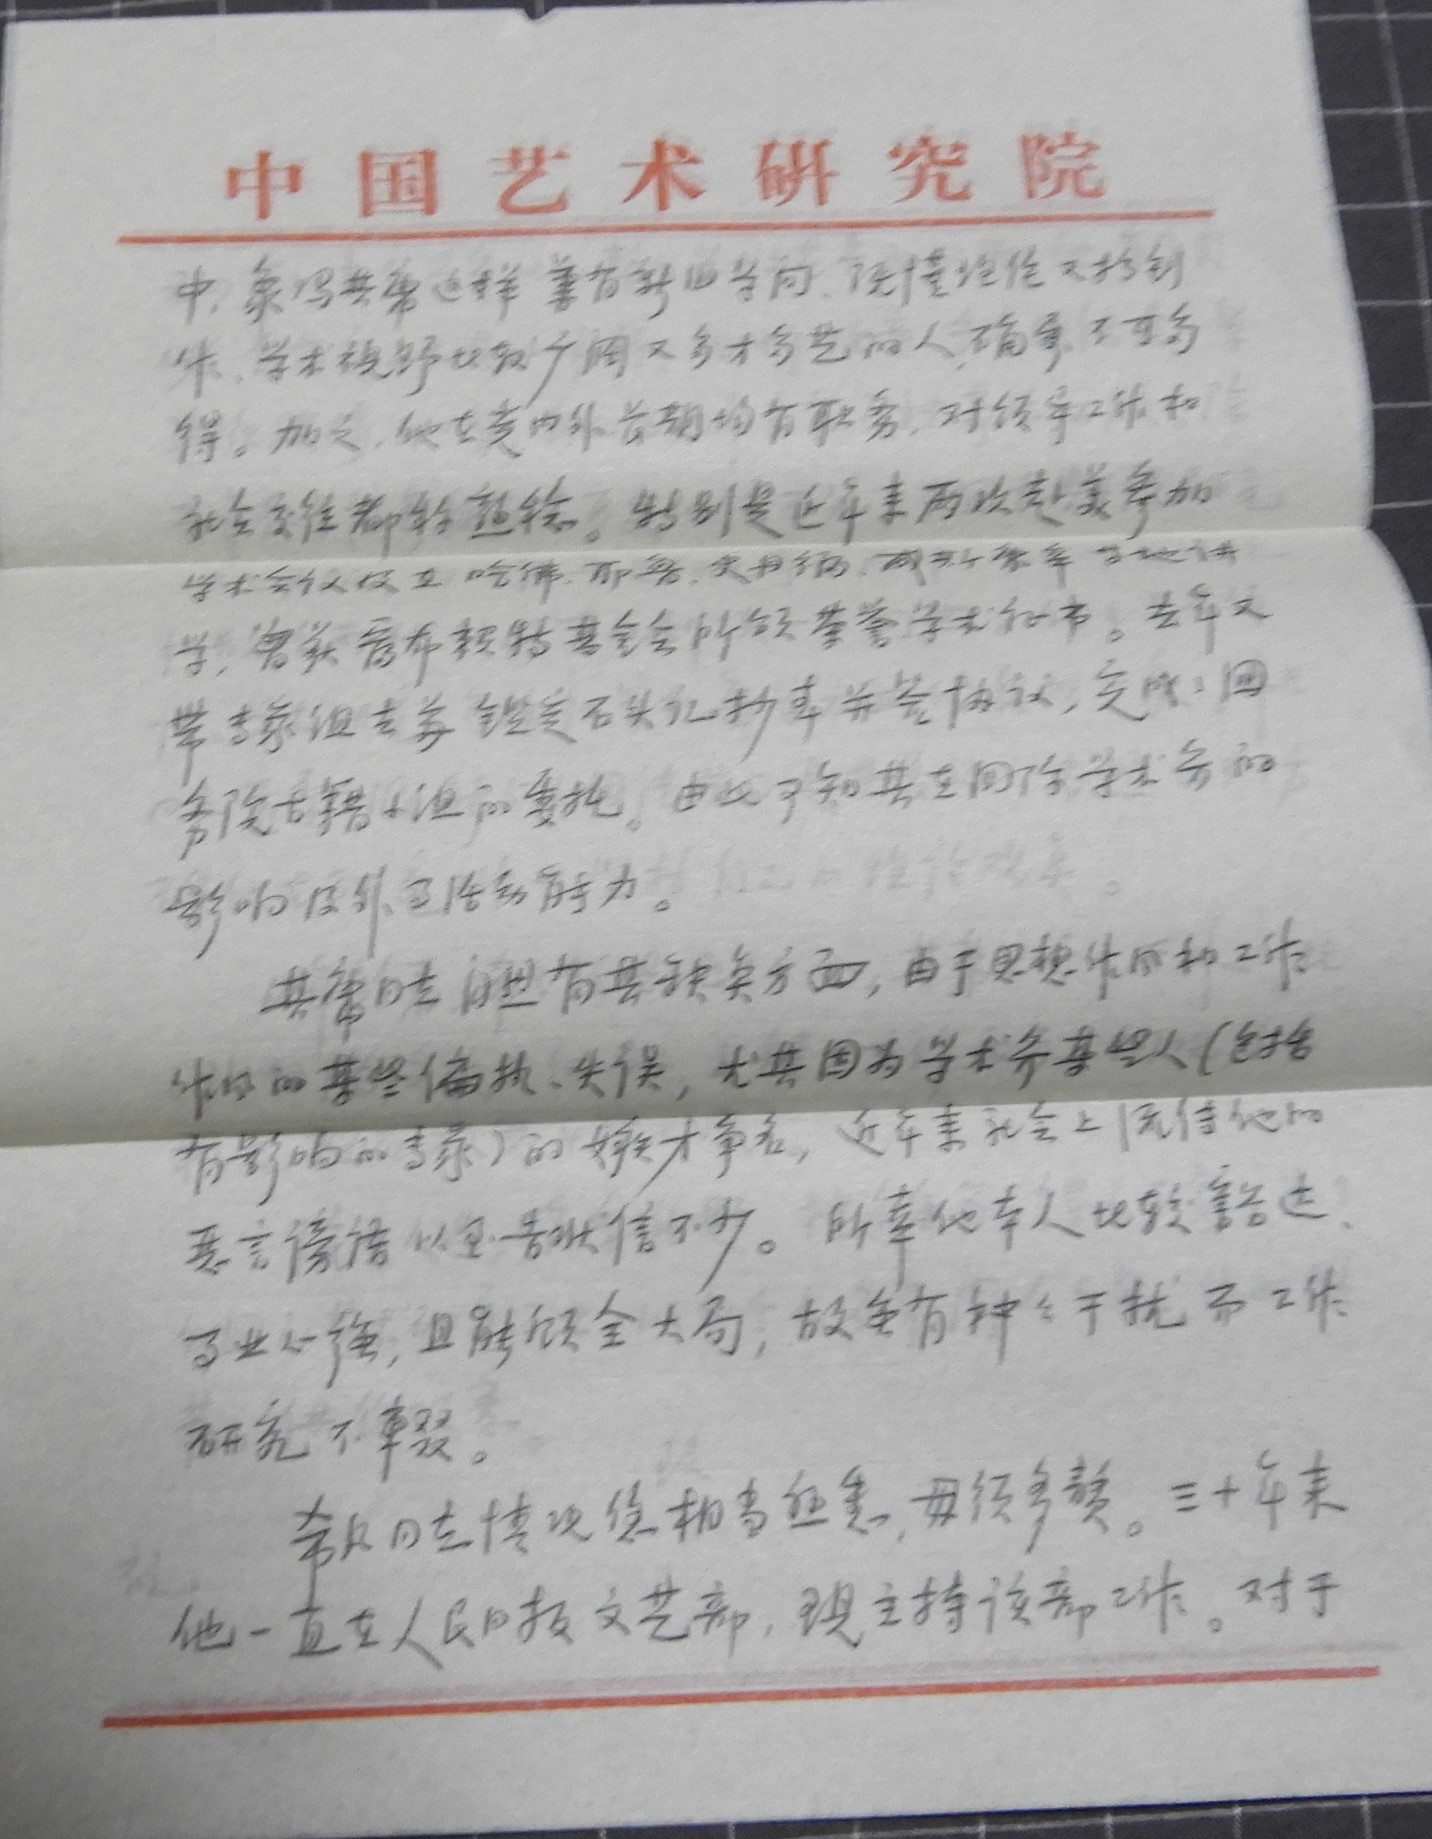 中国艺术研究院
中，象冯其庸这样兼有新旧学问、既懂理论又搞创
作、学术视野比较广阔又多才多艺的人，确乎不可多
得。加之，他在党内外长期均有职务，对领导工作和
社会交往都较熟稔。特别是近年来两次赴美参加
学术会议及在哈佛、耶鲁、史丹福、等地讲
学，曾获富布赖特基金会所颁荣誉学术证书。去年又
带专家组去苏鉴定石头记抄本并签协议，完成了国
务院古籍小组的委托。由此可知其在国际学术界的
影响及外事活动能力。
其庸同志自然有其缺失方面，由于思想作风和工作
作风的某些偏执、失误，尤其因为学术界某些人（包括
有影响的专家）的嫉才争名，近年来社会上流传他的
恶言谤语以至告状信不少。所幸他本人比较豁达、
事业心强，且能顾全大局，故虽有种种干扰而工作
研究不辍。
希凡同志情况您相当熟悉，毋须多赘。三十年来
他一直在人民日报文艺部，现主持该部工作。对于